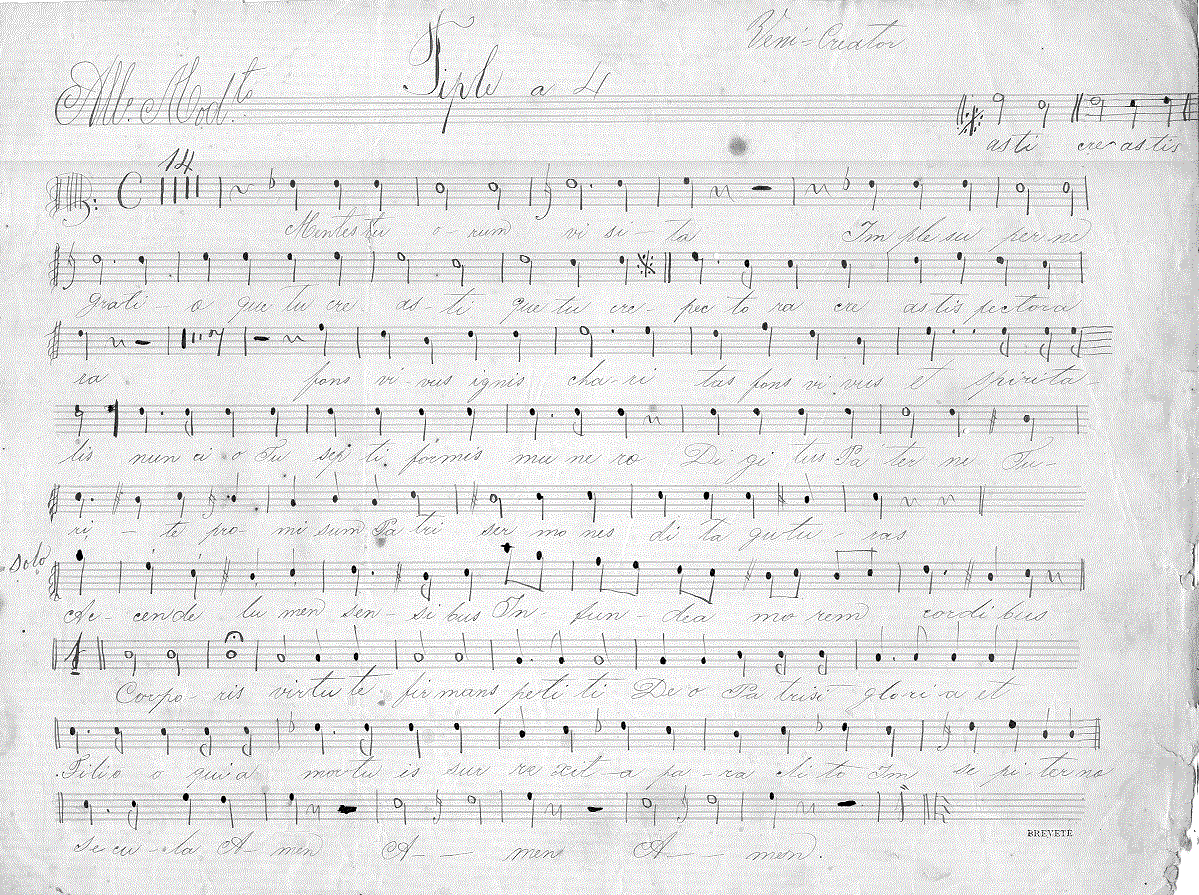 Veni=Creator
Tiple a 4
All.º Mod.to
asti cre-astis
14
Mentes tu o-rum vi si-ta Im ple su per ne
grati-o que tu cre. as ti que tu cre-pec to ra cre astis pectora
ra fons vi-vus ignis cha-ri tas fons vi vus et spirita-
lis mun ci o Tu sep ti formis mu ne ro Di gi tus Pa ter ne Tu-
ri-te pro-mi sum Pa tri ser mo nes di ta gutu-ras
Solo
Ac-cende lu men sen-si bus In-fun-dea mo rem cordi bus
1
Corpo-ris virtu te firmans peti ti De o Pa trisi glo-ri-a et
Filio o qui a mortu is sur re xit-a pa-ra cli to Im se pi-terno
BREVETÉ
secu-la A-men A-- men A-- men.